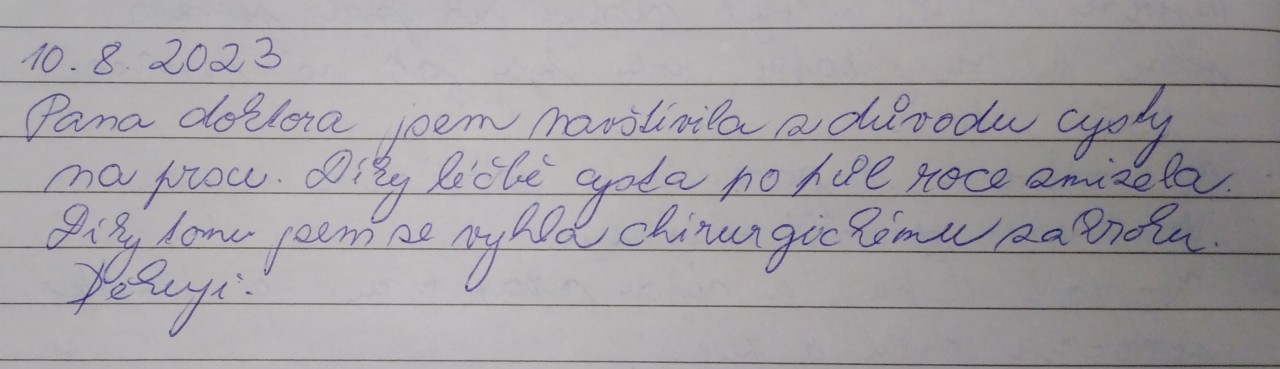 10. 8. 2023
Pana doktora jsem navštívila z důvodu cysty
na prsu. Díky léčbě cysta po půl roce zmizela.
Díky tomu jsem se vyhla chirurgickému zákroku.
Děkuji.